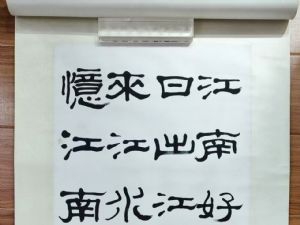 江南好
日出江
來江水
憶江南